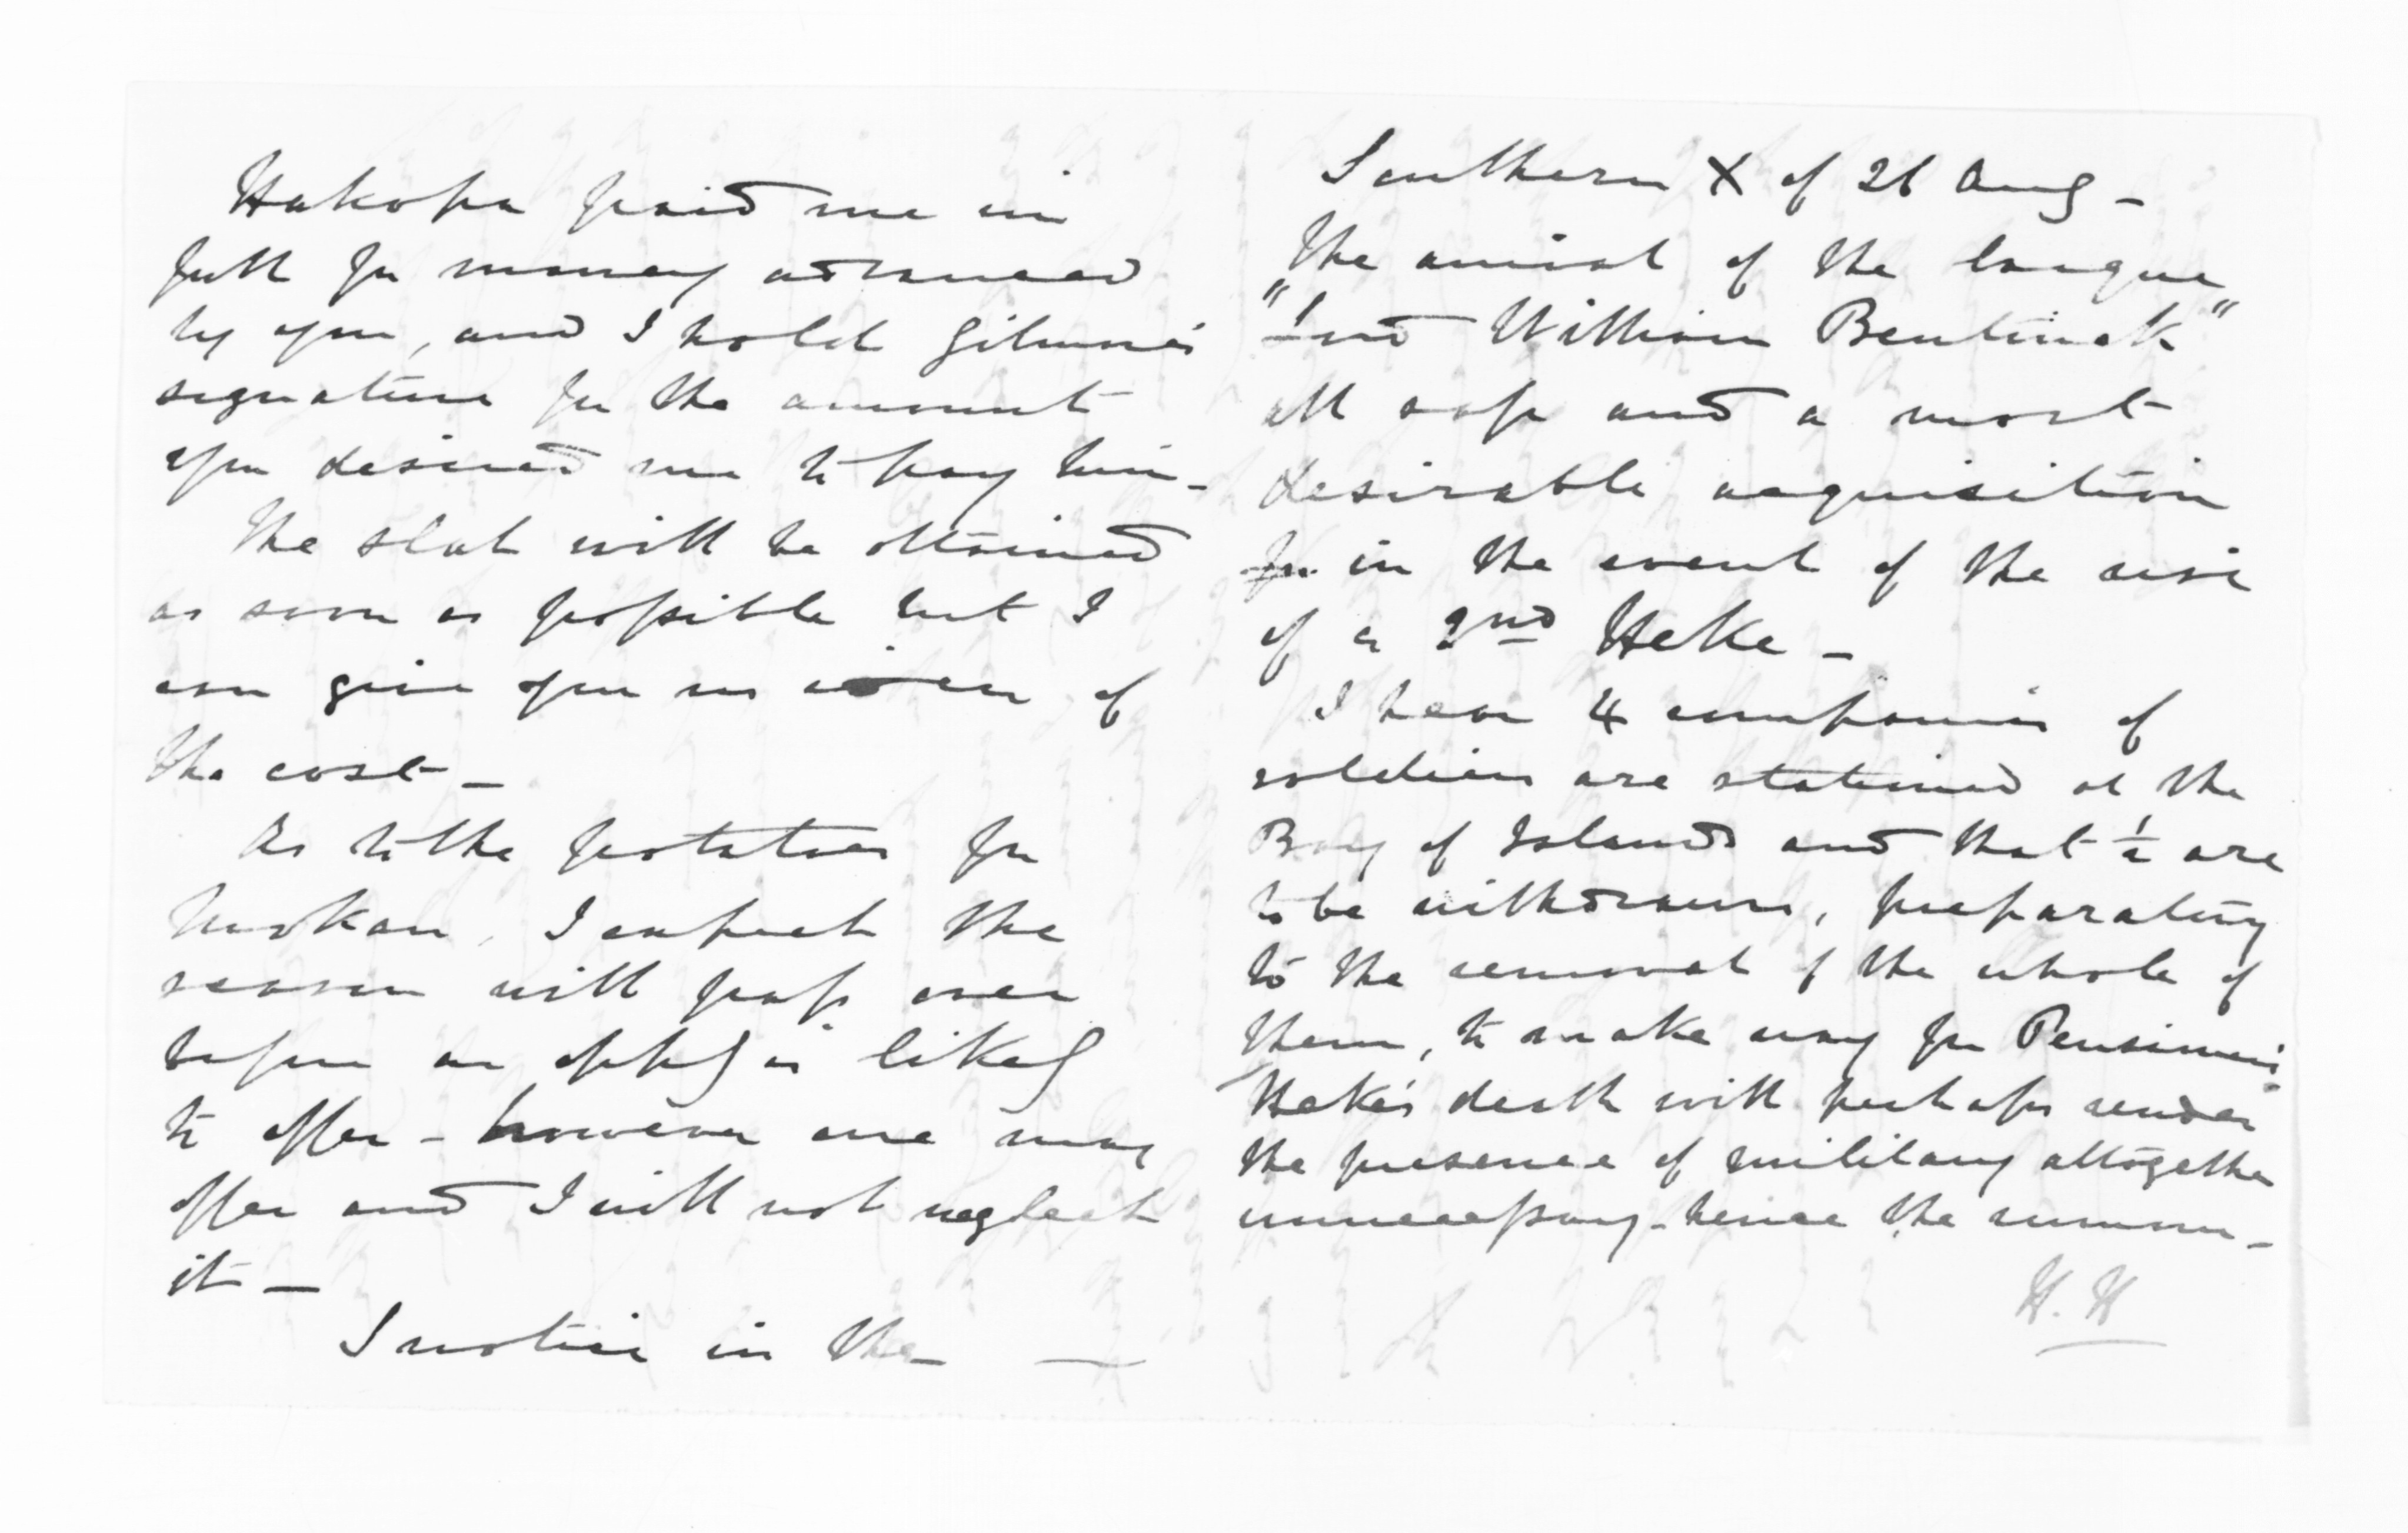 Hakopa paid me in
full for money advanced
by you, and I hold Gilmour's
signature for the amount
you desired me to pay him -
The slab will be obtained
as soon as possible but I
can give you no idea of
the cost -
As to the potatoes for
I expect the
season will pass over
before an oppy is likely
to offer - however one may
offer and I will not neglect
it -
I notice in the -
Southern X of 26 Aug -
the arrival of the barque
"Lord William Bentinck"
all right and a most
desirable acquisition
for in the event of the rise
of a 2nd Heke -
I hear 4 companies of
soldiers are stationed at the
Bay of Islands and that ½ are
to be withdrawn, preparatory
to the removal of the whole of
them, to make way for Pensioners
Heke's death will perhaps render
the presence of military altogether
unnecessary - hence the rumour -
H. H